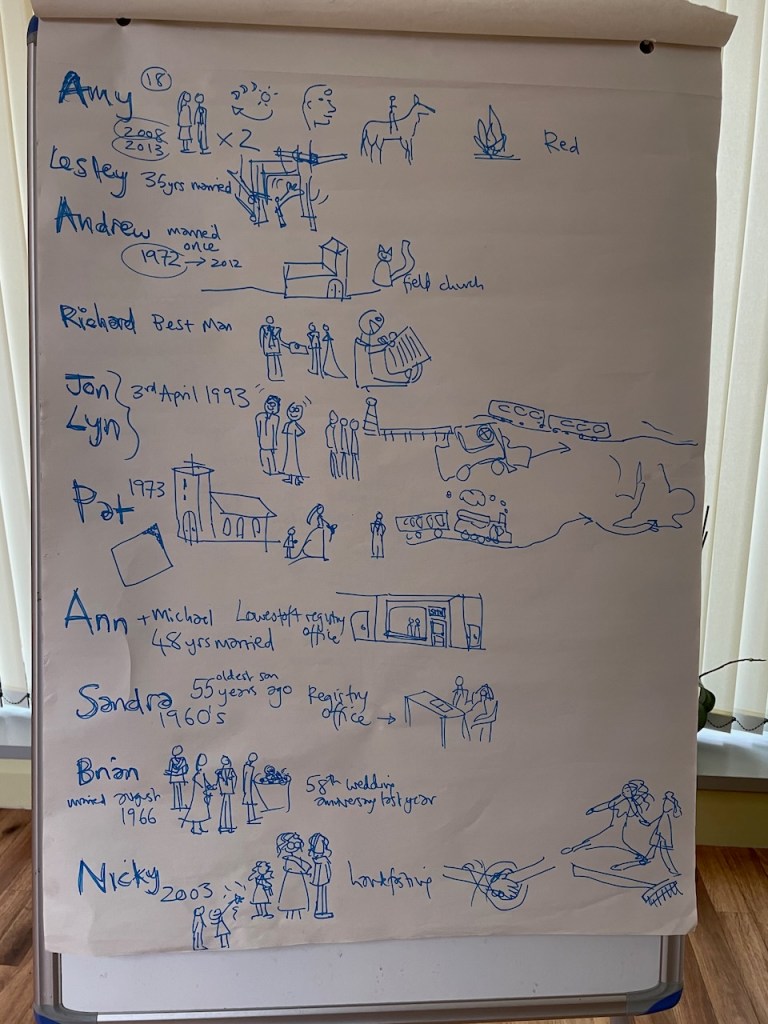 Amy 18
2008
2013 x2
Red
Lesley 35yrs married
Andrew married
once
1972 → 2012
field church
Richard Best Man
Jon
Lyn } 3rd April 1993
Pat 1973
Ann + Michael Lowestoft registry
office
48 yrs married
Sandra 55 oldest son
years ago
1960's
Registry
office →
Brian
married august
1966
58th wedding
anniversary last year
Nicky 2003
handfasting